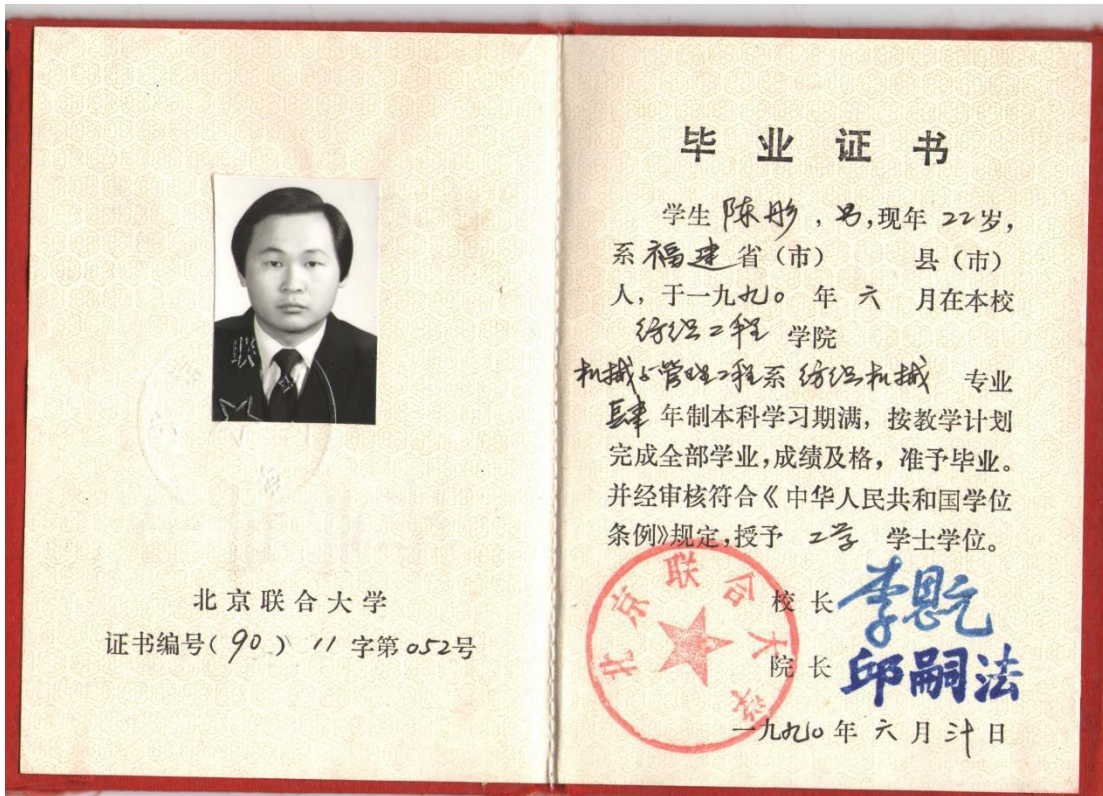 北京联合大学
证书编号(90)11字第052号
毕业证书
学生陈彤,男,现年22岁,
系福建省(市) 县(市)
人,于一九九〇年六月在本校
纺织工程学院
机械与管理工程系纺织机械专业
肆年制本科学习期满,按教学计划
完成全部学业,成绩及格,准予毕业。
并经审核符合《中华人民共和国学位
条例》规定,授予工学学士学位。
校长李恩元
院长邱嗣法
一九九〇年六月卅日
北京联合大学